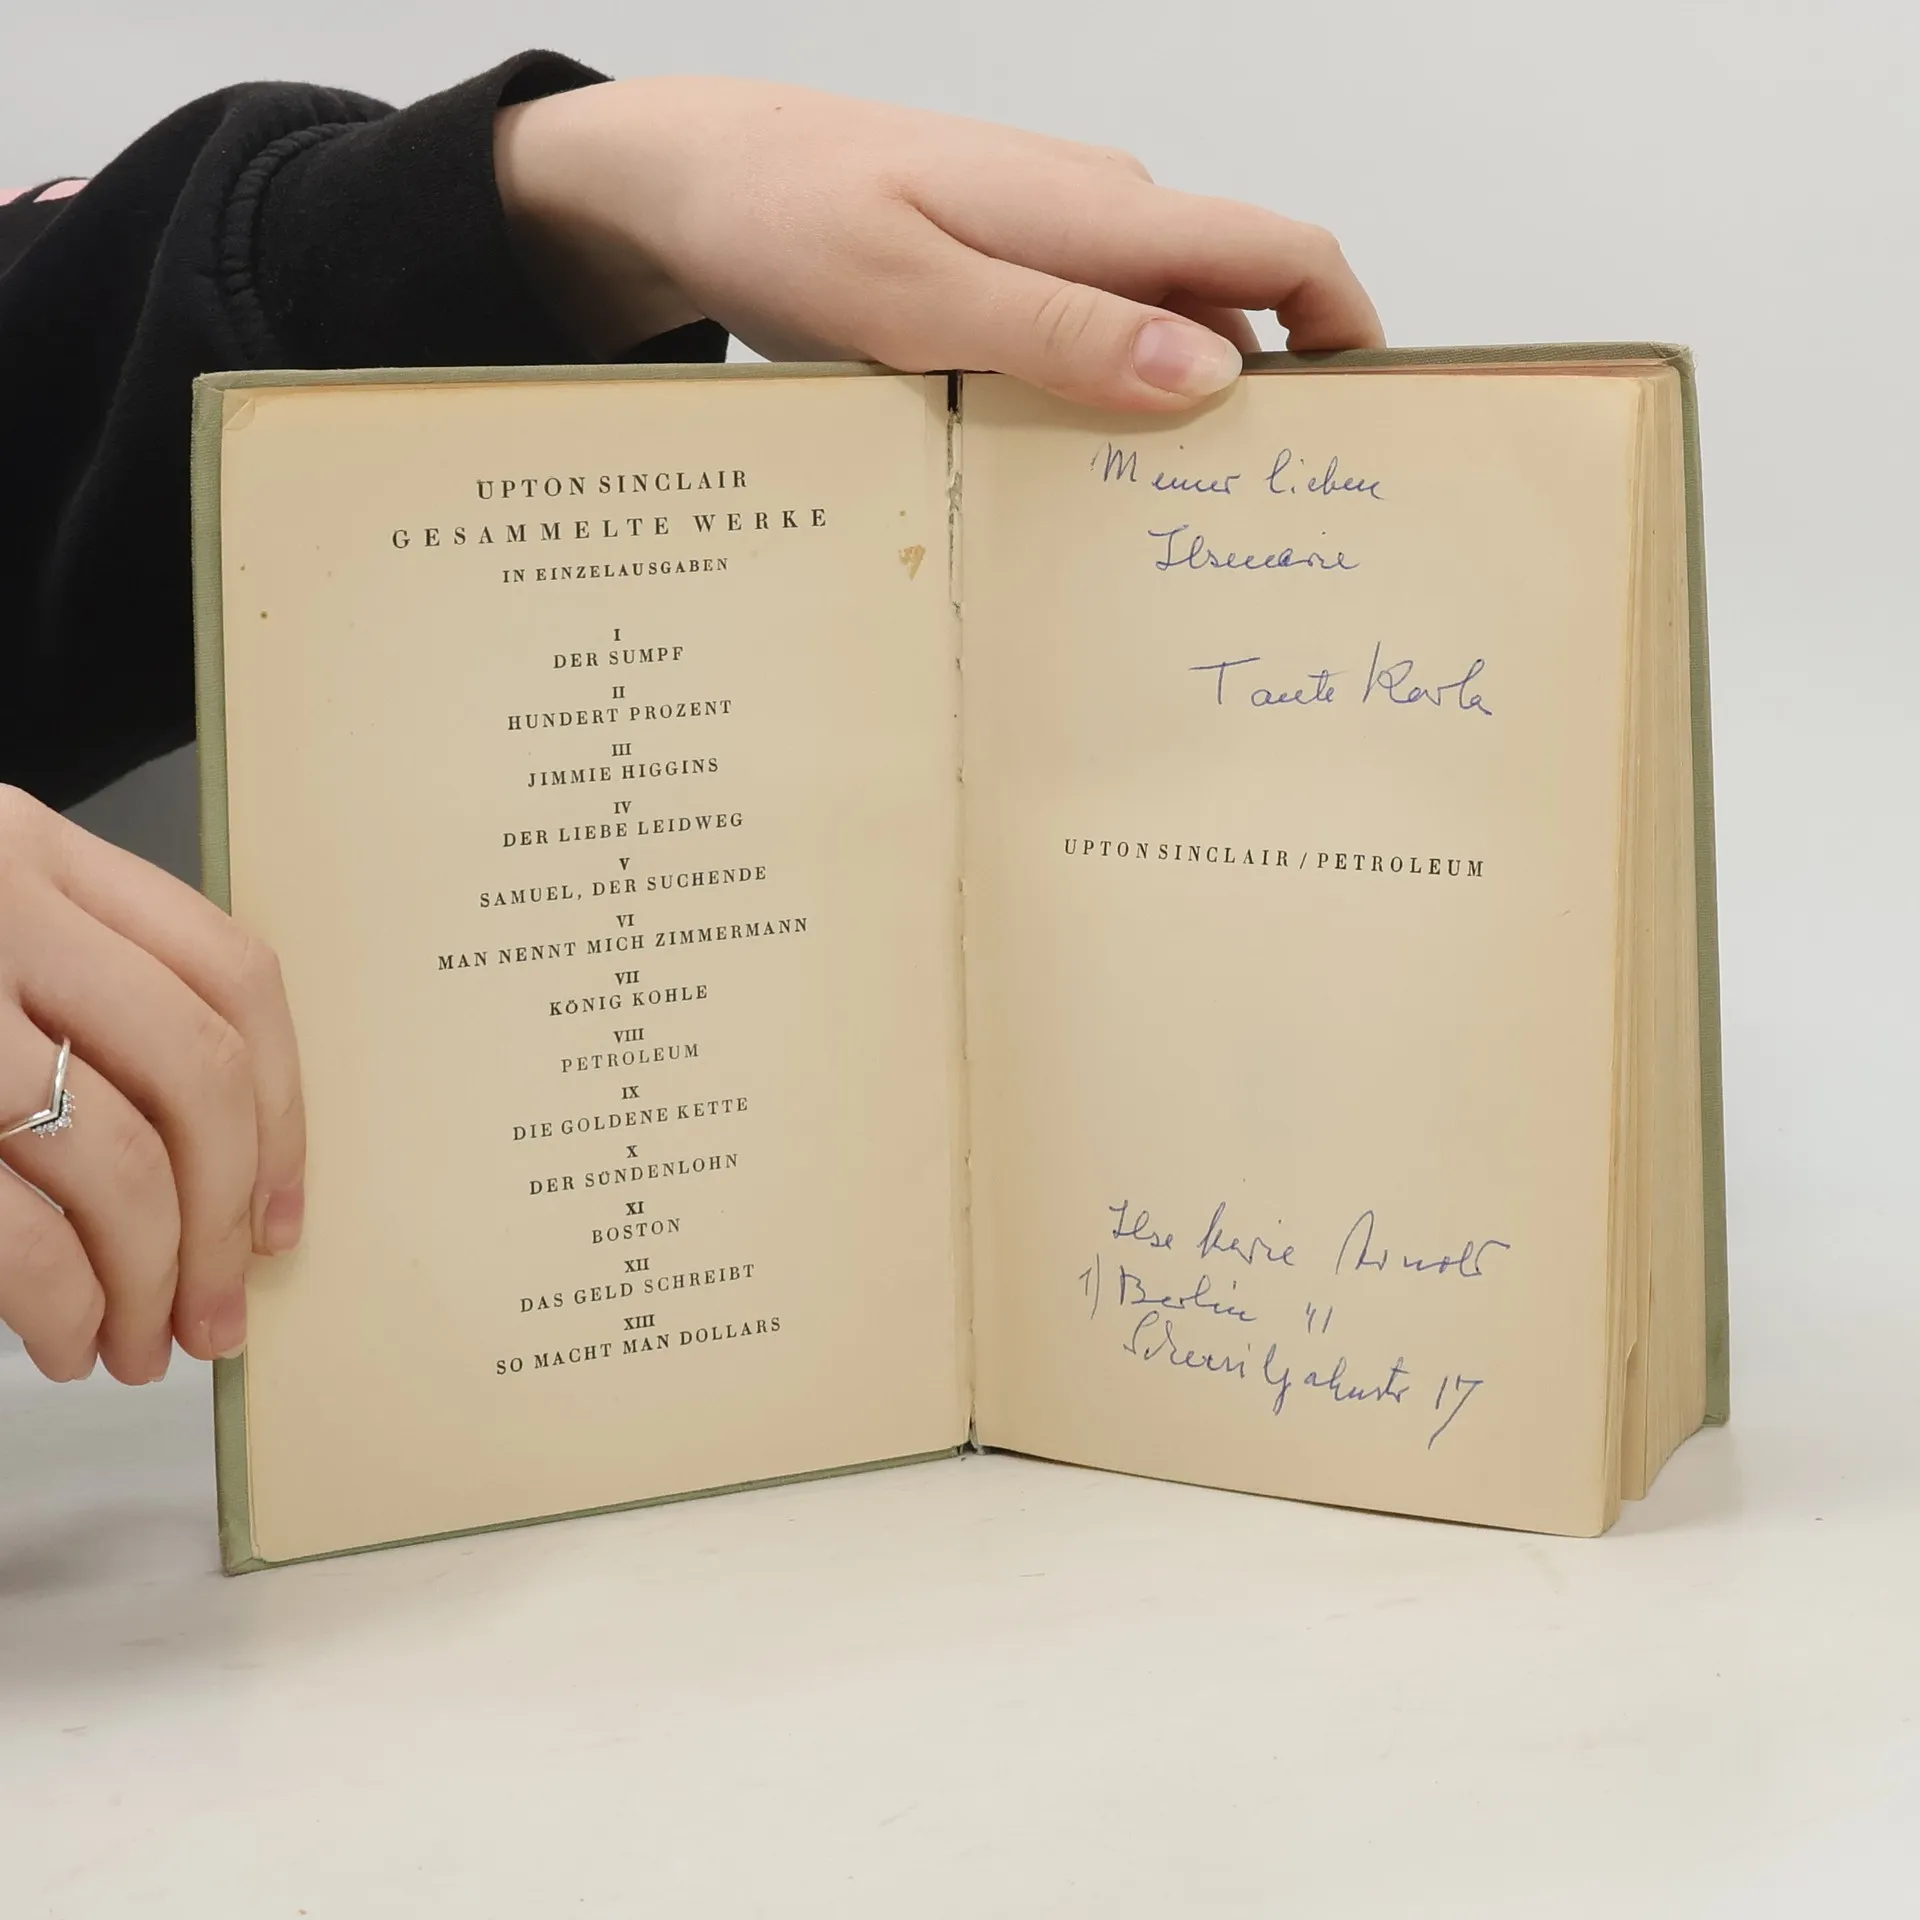 UPTON SINCLAIR
GESAMMELTE WERKE
IN EINZELAUSGABEN
I
DER SUMPF
II
HUNDERT PROZENT
III
JIMMIE HIGGINS
IV
DER LIEBE LEIDWEG
V
SAMUEL, DER SUCHENDE
VI
MAN NENNT MICH ZIMMERMANN
VII
KÖNIG KOHLE
VIII
PETROLEUM
IX
DIE GOLDENE KETTE
X
DER SÜNDENLOHN
XI
BOSTON
XII
DAS GELD SCHREIBT
XIII
SO MACHT MAN DOLLARS
Meiner lieben
Ilsemarie
Tante Karla
UPTON SINCLAIR / PETROLEUM
Ilse Marie Arnold
1) Berlin 41
17